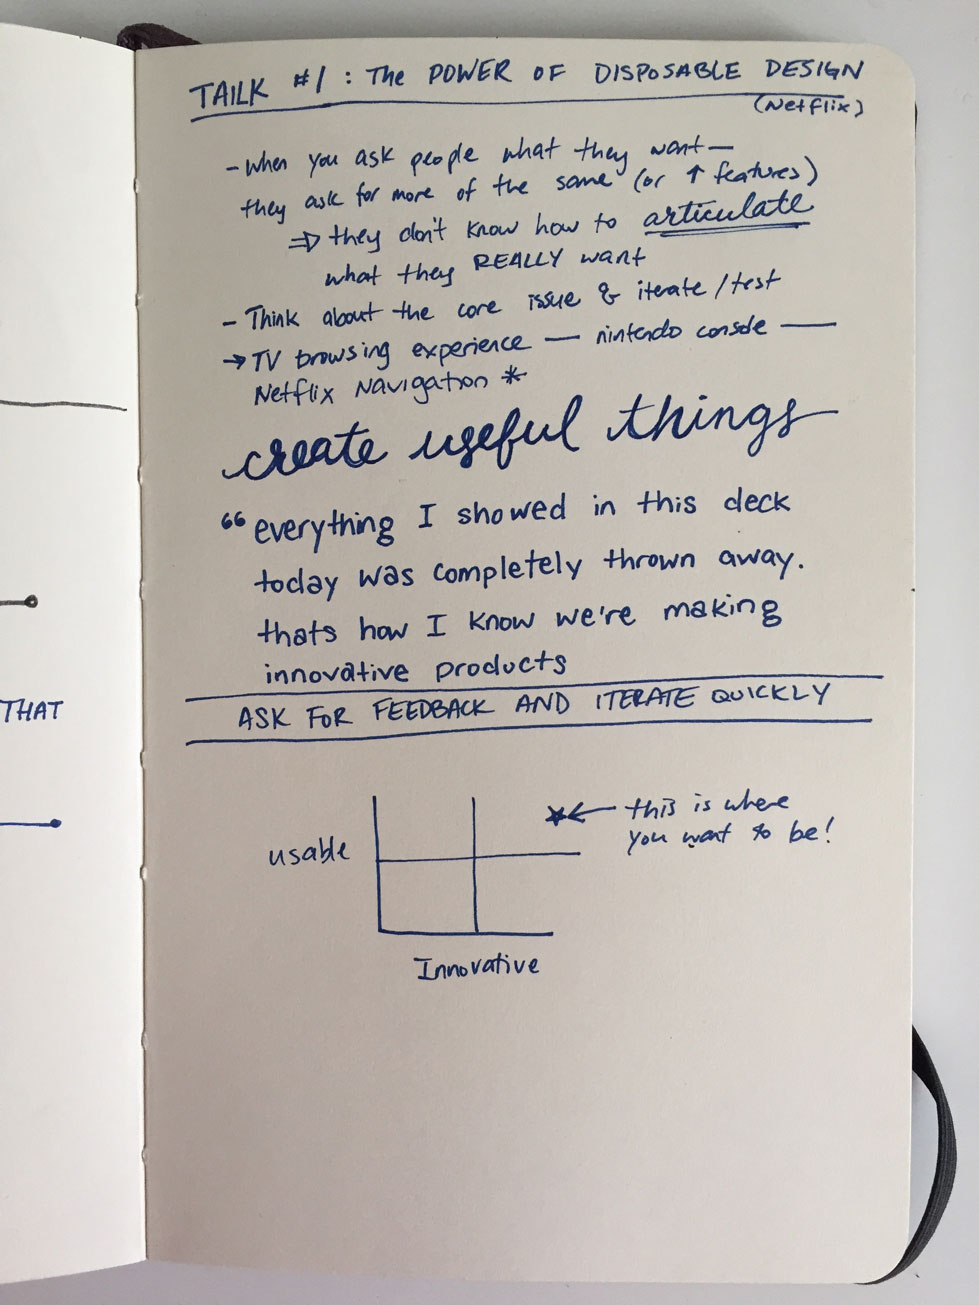 TAILK #1 : The POWER OF DISPOSABLE DESIGN
(Netflix)
- when you ask people what they want —
they ask for more of the same (or ↑ features)
⇒ they don't know how to articulate
what they REALLY want
- Think about the core issue & iterate / test
→ TV browsing experience — nintendo console —
Netflix Navigation *
create useful things
“ everything I showed in this deck
today was completely thrown away.
thats how I know we're making
innovative products
ASK FOR FEEDBACK AND ITERATE QUICKLY
THAT
← this is where
you want to be!
usable
Innovative